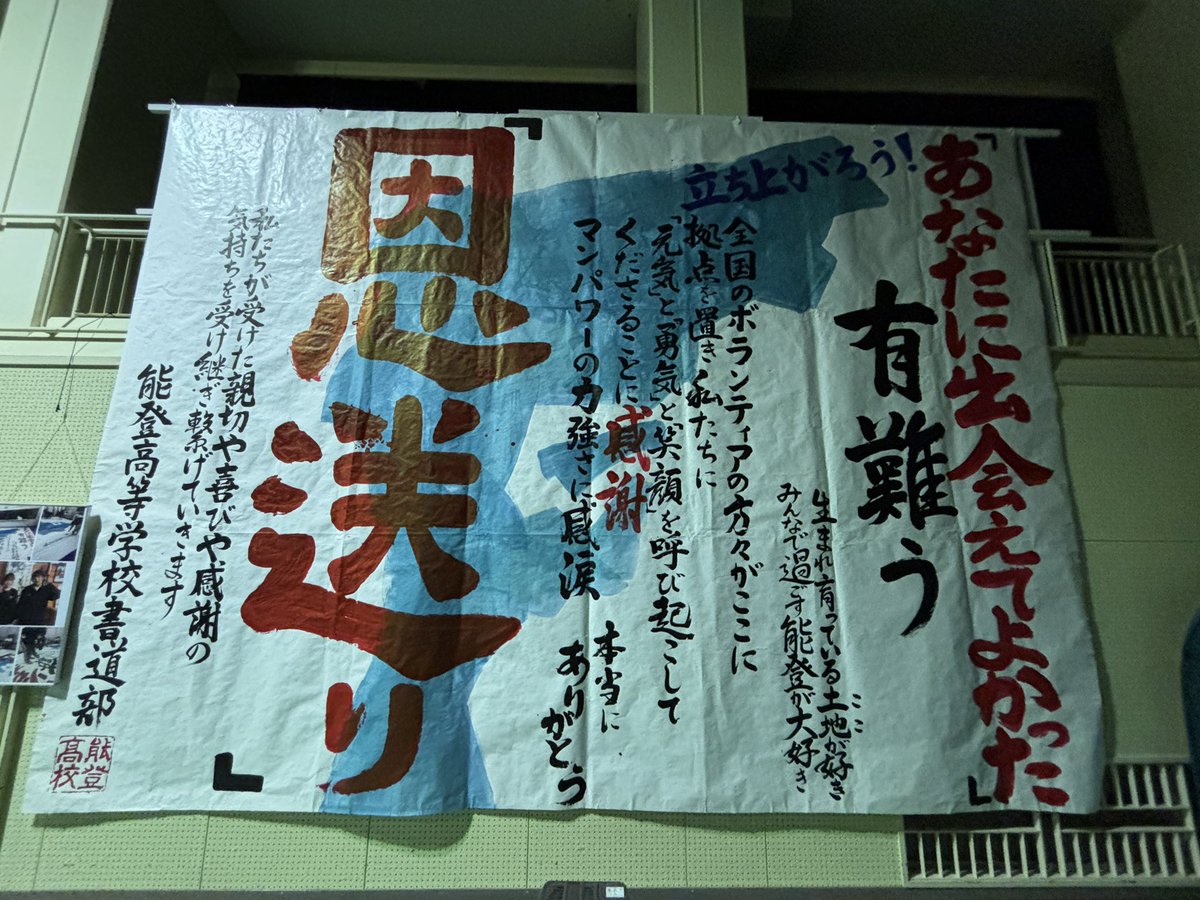 「あなたに出会えてよかった」
有難う
立ち上がろう!
生まれ育っている土地が好き
ここ
みんなで過ごす能登が大好き
全国のボランティアの方々がここに
拠点を置き私たちに
「元気」と「勇気」と「笑顔」を呼び起こして
くださることに感謝
本当に
マンパワーの力強さに感涙
ありがとう
『恩送り』
私たちが受けた親切や喜びや感謝の
気持ちを受け継ぎ繋げていきます
能登高等学校書道部
能登
高校